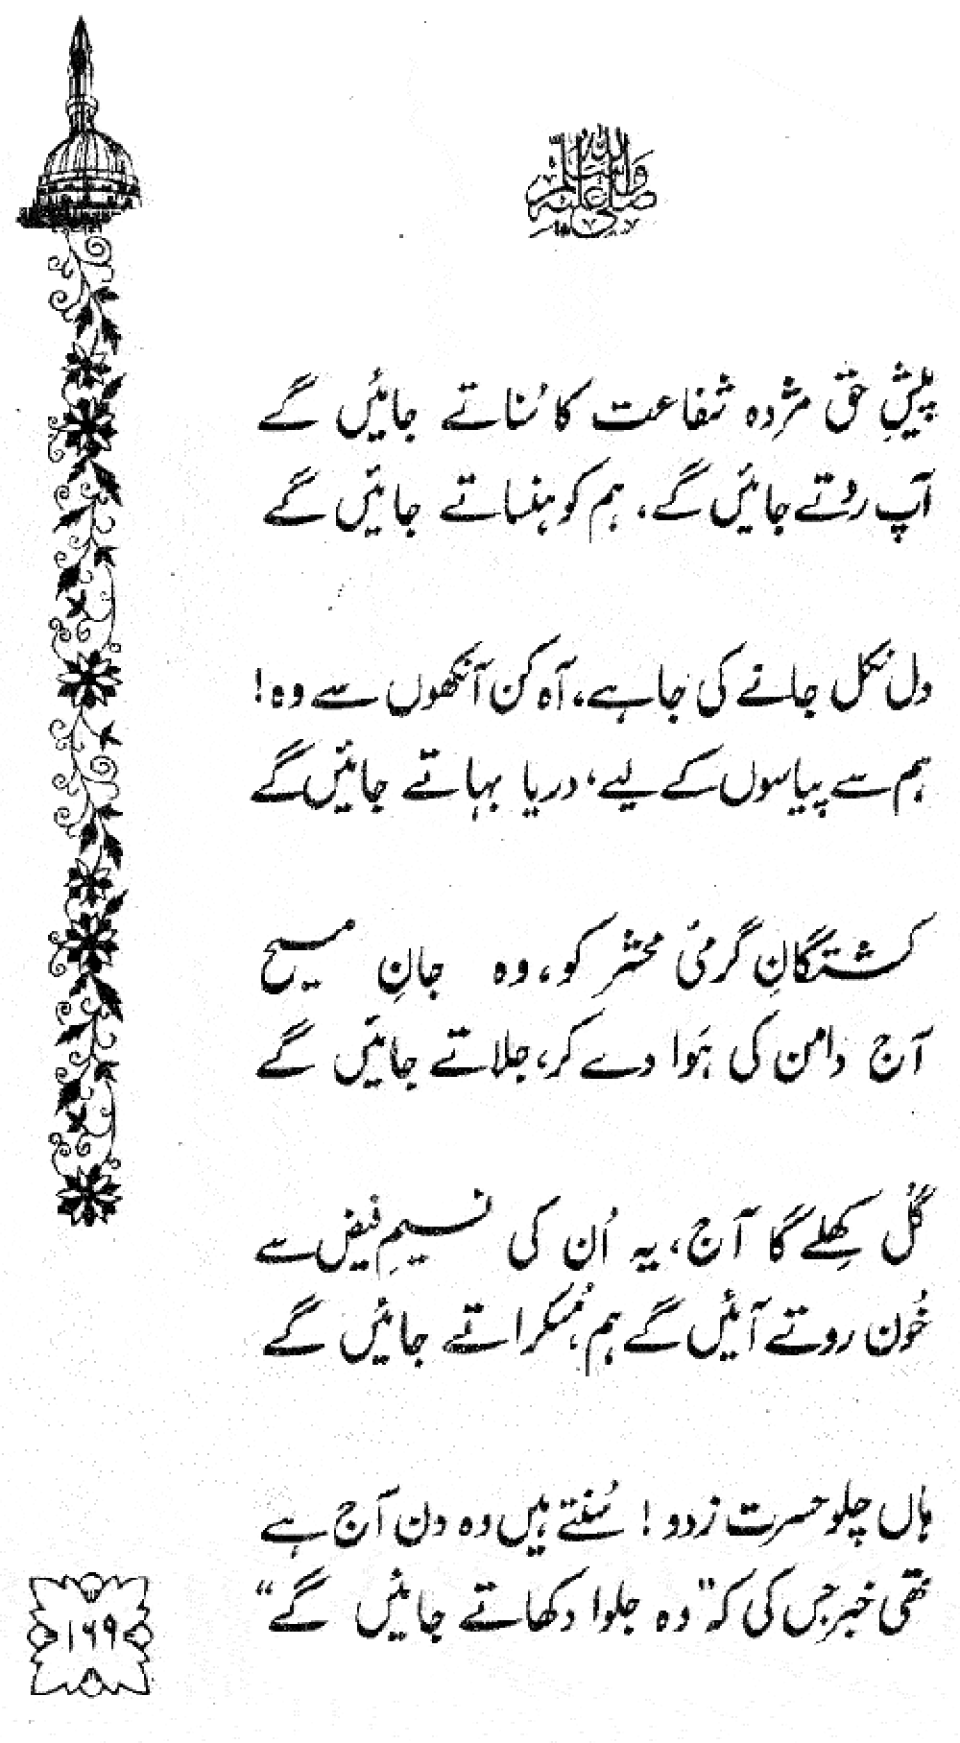 صلی اللہ علیہ وسلم
پیشِ حق مژدہ شفاعت کا سُناتے جائیں گے
آپ روتے جائیں گے، ہم کو ہنساتے جائیں گے
دل نکل جانے کی جا ہے، آہ کن آنکھوں سے وہ!
ہم سے پیاسوں کے لیے، دریا بہاتے جائیں گے
کشتگانِ گرمیٔ محشر کو، وہ جانِ مسیح
آج دامن کی ہَوا دے کر، جلاتے جائیں گے
گُل کھِلے گا آج، یہ اُن کی نسیمِ فیض سے
خُون روتے آئیں گے ہم، مُسکراتے جائیں گے
ہاں چلو حسرت زدو! سُنتے ہیں وہ دن آج ہے
تھی خبر جس کی کہ "وہ جلوا دکھاتے جائیں گے"
۱۶۹